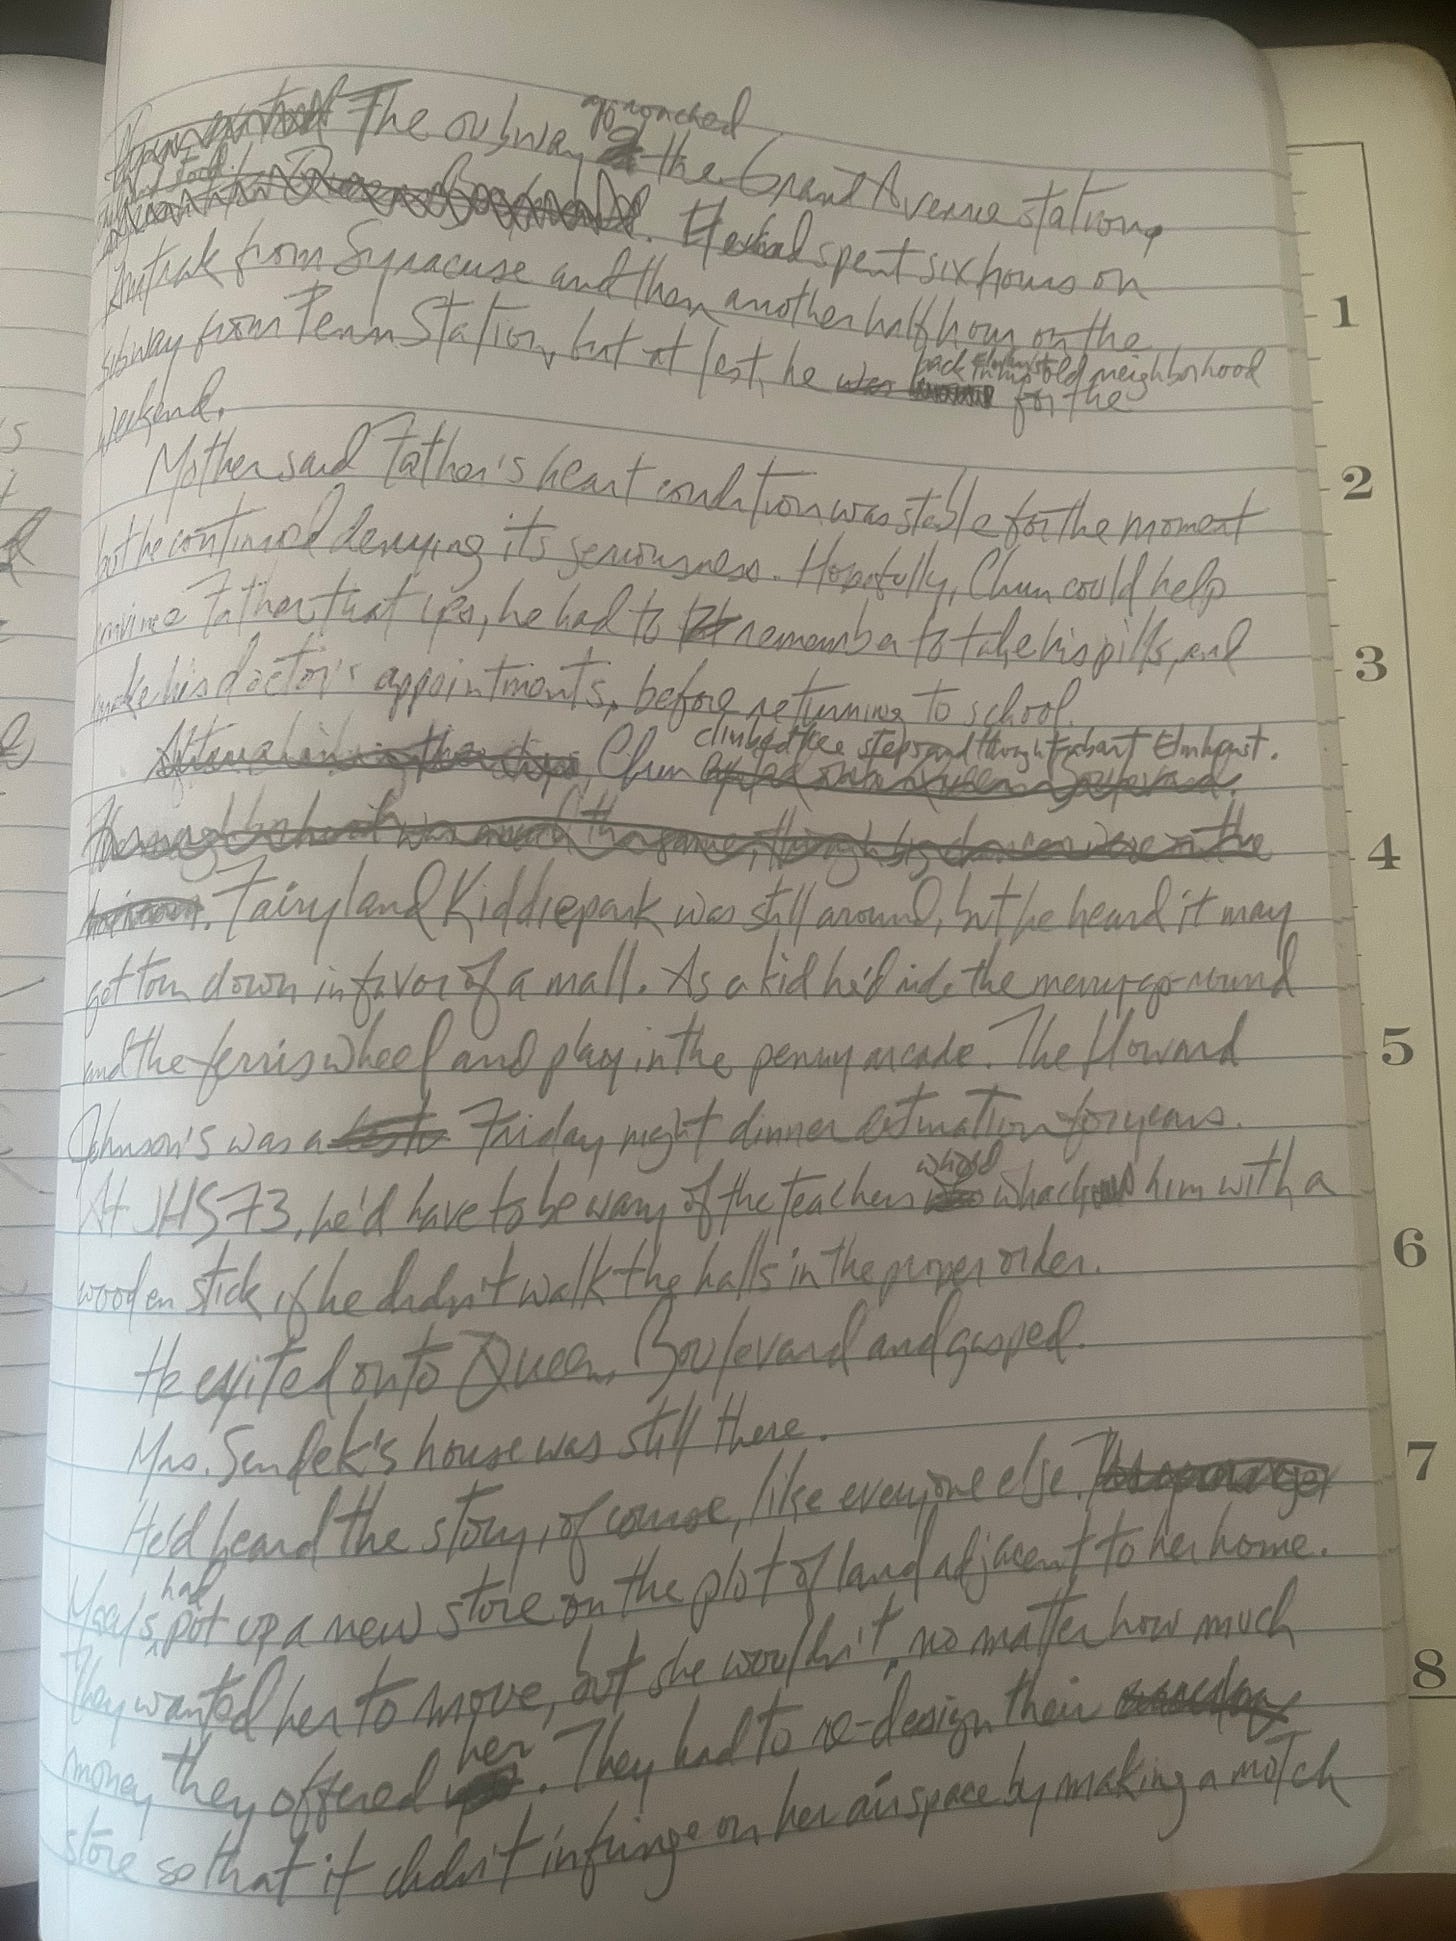 The subway approached the Grand Avenue station,
. He had spent six hours on
Amtrak from Syracuse and then another half hour on the
subway from Penn Station, but at last, he was back in his old neighborhood for the
weekend.
Mother said Father's heart condition was stable for the moment
but he continued denying its seriousness. Hopefully, Chun could help
convince Father that yes, he had to remember to take his pills, and
make his doctor's appointments, before returning to school.
Chun climbed the steps and thought about Elmhurst.
Fairyland Kiddiepark was still around, but he heard it may
get torn down in favor of a mall. As a kid he'd ride the merry-go-round
and the ferris wheel and play in the penny arcade. The Howard
Johnson's was a Friday night dinner destination for years.
At JHS 73, he'd have to be wary of the teachers who'd whack him with a
wooden stick if he didn't walk the halls in the proper order.
He exited onto Queens Boulevard and gasped.
Mrs. Sendek's house was still there.
He'd heard the story, of course, like everyone else.
Macy's had put up a new store on the plot of land adjacent to her home.
They wanted her to move, but she wouldn't, no matter how much
money they offered her. They had to re-design their
store so that it didn't infringe on her airspace by making a notch